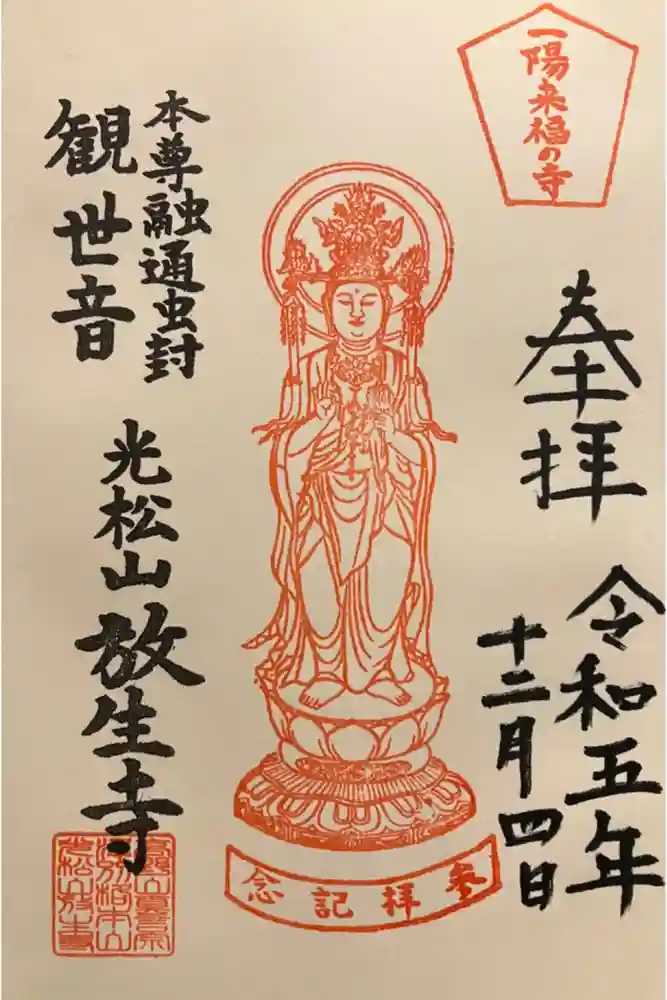 一陽来福の寺
奉拝
令和五年
十二月四日
参拝記念
本尊融通虫封
観世音
光松山放生寺